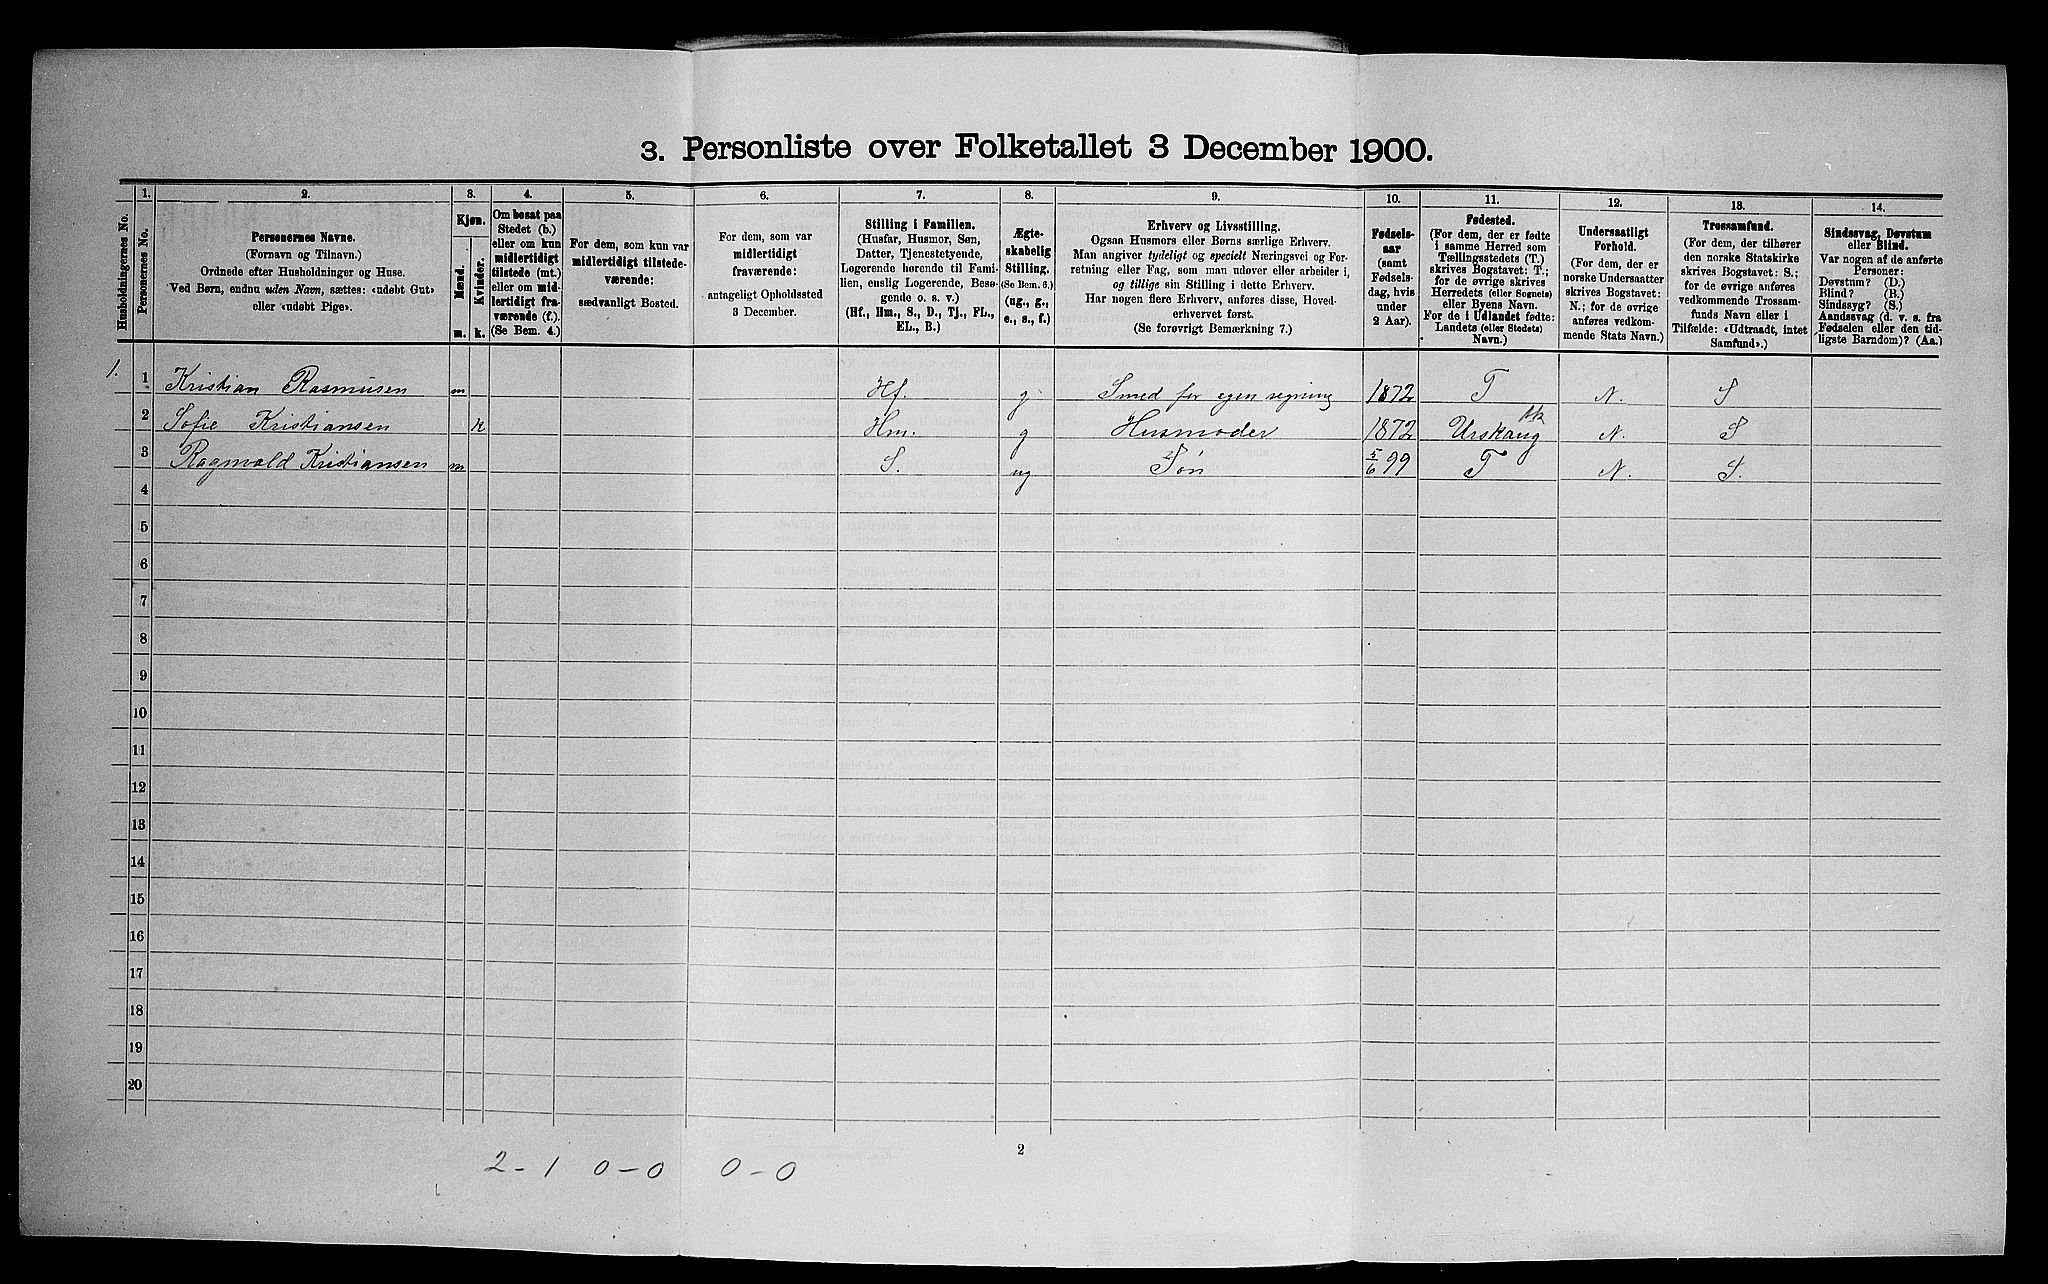 3. Personliste over Folketallet 3 December 1900.
Husholdningernes No.
1.
Personernes No.
2.
Personernes Navne.
(Fornavn og Tilnavn.)
Ordnede efter Husholdninger og Huse.
Ved Børn, endnu uden Navn, sættes: «udøbt Gut»
eller «udøbt Pige».
3.
Kjøn.
Mænd.
Kvinder.
m.
k.
4.
Om bosat paa
Stedet (b.)
eller om kun
midlertidigt
tilstede (mt.)
eller om mid-
lertidigt fra-
værende (f.)
(Se Bem. 4.)
5.
For dem, som kun var
midlertidigt tilstede-
værende:
sædvanligt Bosted.
6.
For dem, som var
midlertidigt
fraværende:
antageligt Opholdssted
3 December.
7.
Stilling i Familien.
(Husfar, Husmor, Søn,
Datter, Tjenestetyende,
Logerende hørende til Fami-
lien, enslig Logerende, Besø-
gende o. s. v.)
(Hf., Hm., S., D., Tj., FL.,
EL., B.)
8.
Ægte-
skabelig
Stilling.
(Se Bem. 6.)
(ug., g.,
e., s., f.)
9.
Erhverv og Livsstilling.
Ogsaa Husmors eller Børns særlige Erhverv.
Man angiver tydeligt og specielt Næringsvei og For-
retning eller Fag, som man udover eller arbeider i,
og tillige sin Stilling i dette Erhverv.
Har nogen flere Erhverv, anføres disse, Hoved-
erhvervet først.
(Se forøvrigt Bemærkning 7.)
10.
Fødsels-
aar
(samt
Fødsels-
dag, hvis
under
2 Aar).
11.
Fødested.
(For dem, der er fødte
i samme Herred som
Tællingsstedets (T.)
skrives Bogstavet: T.;
for de øvrige skrives
Herredets (eller Sognets)
eller Byens Navn.
For de i Udlandet fødte:
Landets (eller Stedets)
Navn.)
12.
Undersaatligt
Forhold.
(For dem, der er
norske Undersaatter
skrives Bogstavet:
N.; for de øvrige
anføres vedkom-
mende Stats Navn.)
13.
Trossamfund.
(For dem, der tilhører
den norske Statskirke
skrives Bogstavet: S.;
for de øvrige anføres
vedkommende Trossam-
funds Navn eller i
Tilfælde: «Udtraadt, intet
Samfund».)
14.
Sindssvag, Døvstum
eller Blind.
Var nogen af de anførte
Personer:
Døvstum? (D.)
Blind? (B.)
Sindssyg? (S.)
Aandssvag (d. v. s. fra
Fødselen eller den tid-
ligste Barndom)? (Aa.)
1. 1 Kristian Rasmusen m Hf. g Smed for egen regning 1872 T N. S
2 Sofie Kristiansen k Hm. g Husmoder 1872 Urskaug Ak N. S
3 Ragnvald Kristiansen m S. ug Søn 5/6 99 T N. S.
4
5
6
7
8
9
10
11
12
13
14
15
16
17
18
19
20
2
2-1 0-0 0-0